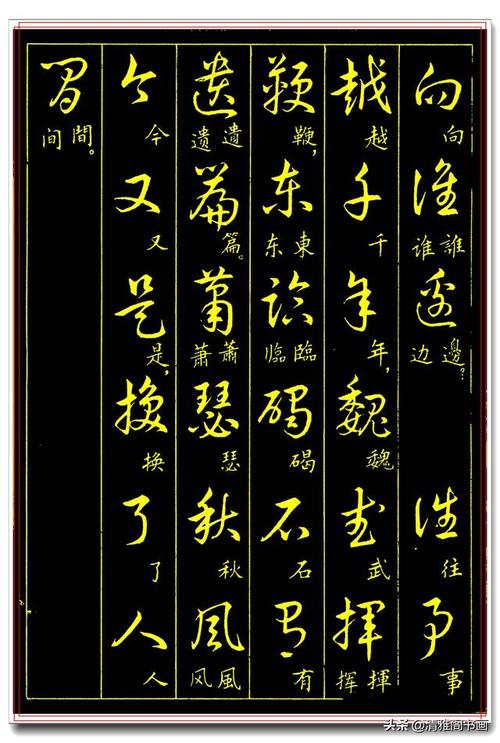 向誰邊往事
向 谁誰 边邊? 往 事
越千年魏武揮
越 千 年, 魏 武 挥揮
鞭东臨碣石有
鞭, 东東 临臨 碣 石 有
遺篇蕭瑟秋風
遗遺 篇。 萧蕭 瑟 秋 风風
今又是换了人
今 又 是, 换 了 人
間
间間。
头条 @清雅阁书画